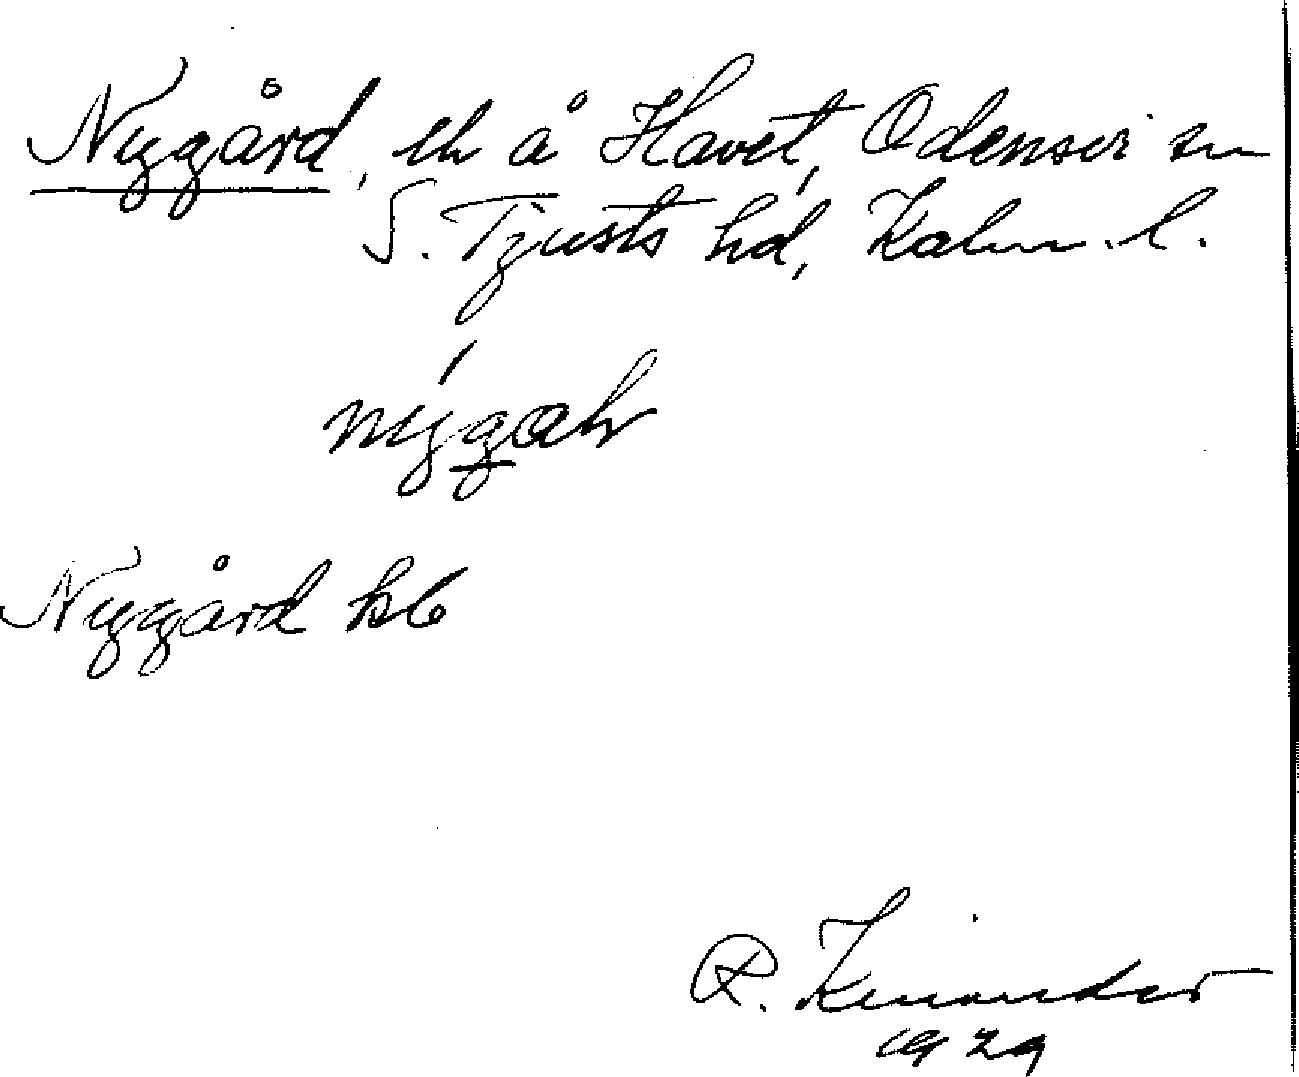 Nygård, lh å Havet, Odensvi sn
S. Tjusts hd, Kalm. l.
nýgah
Nygård kb
R. Kinander
1929